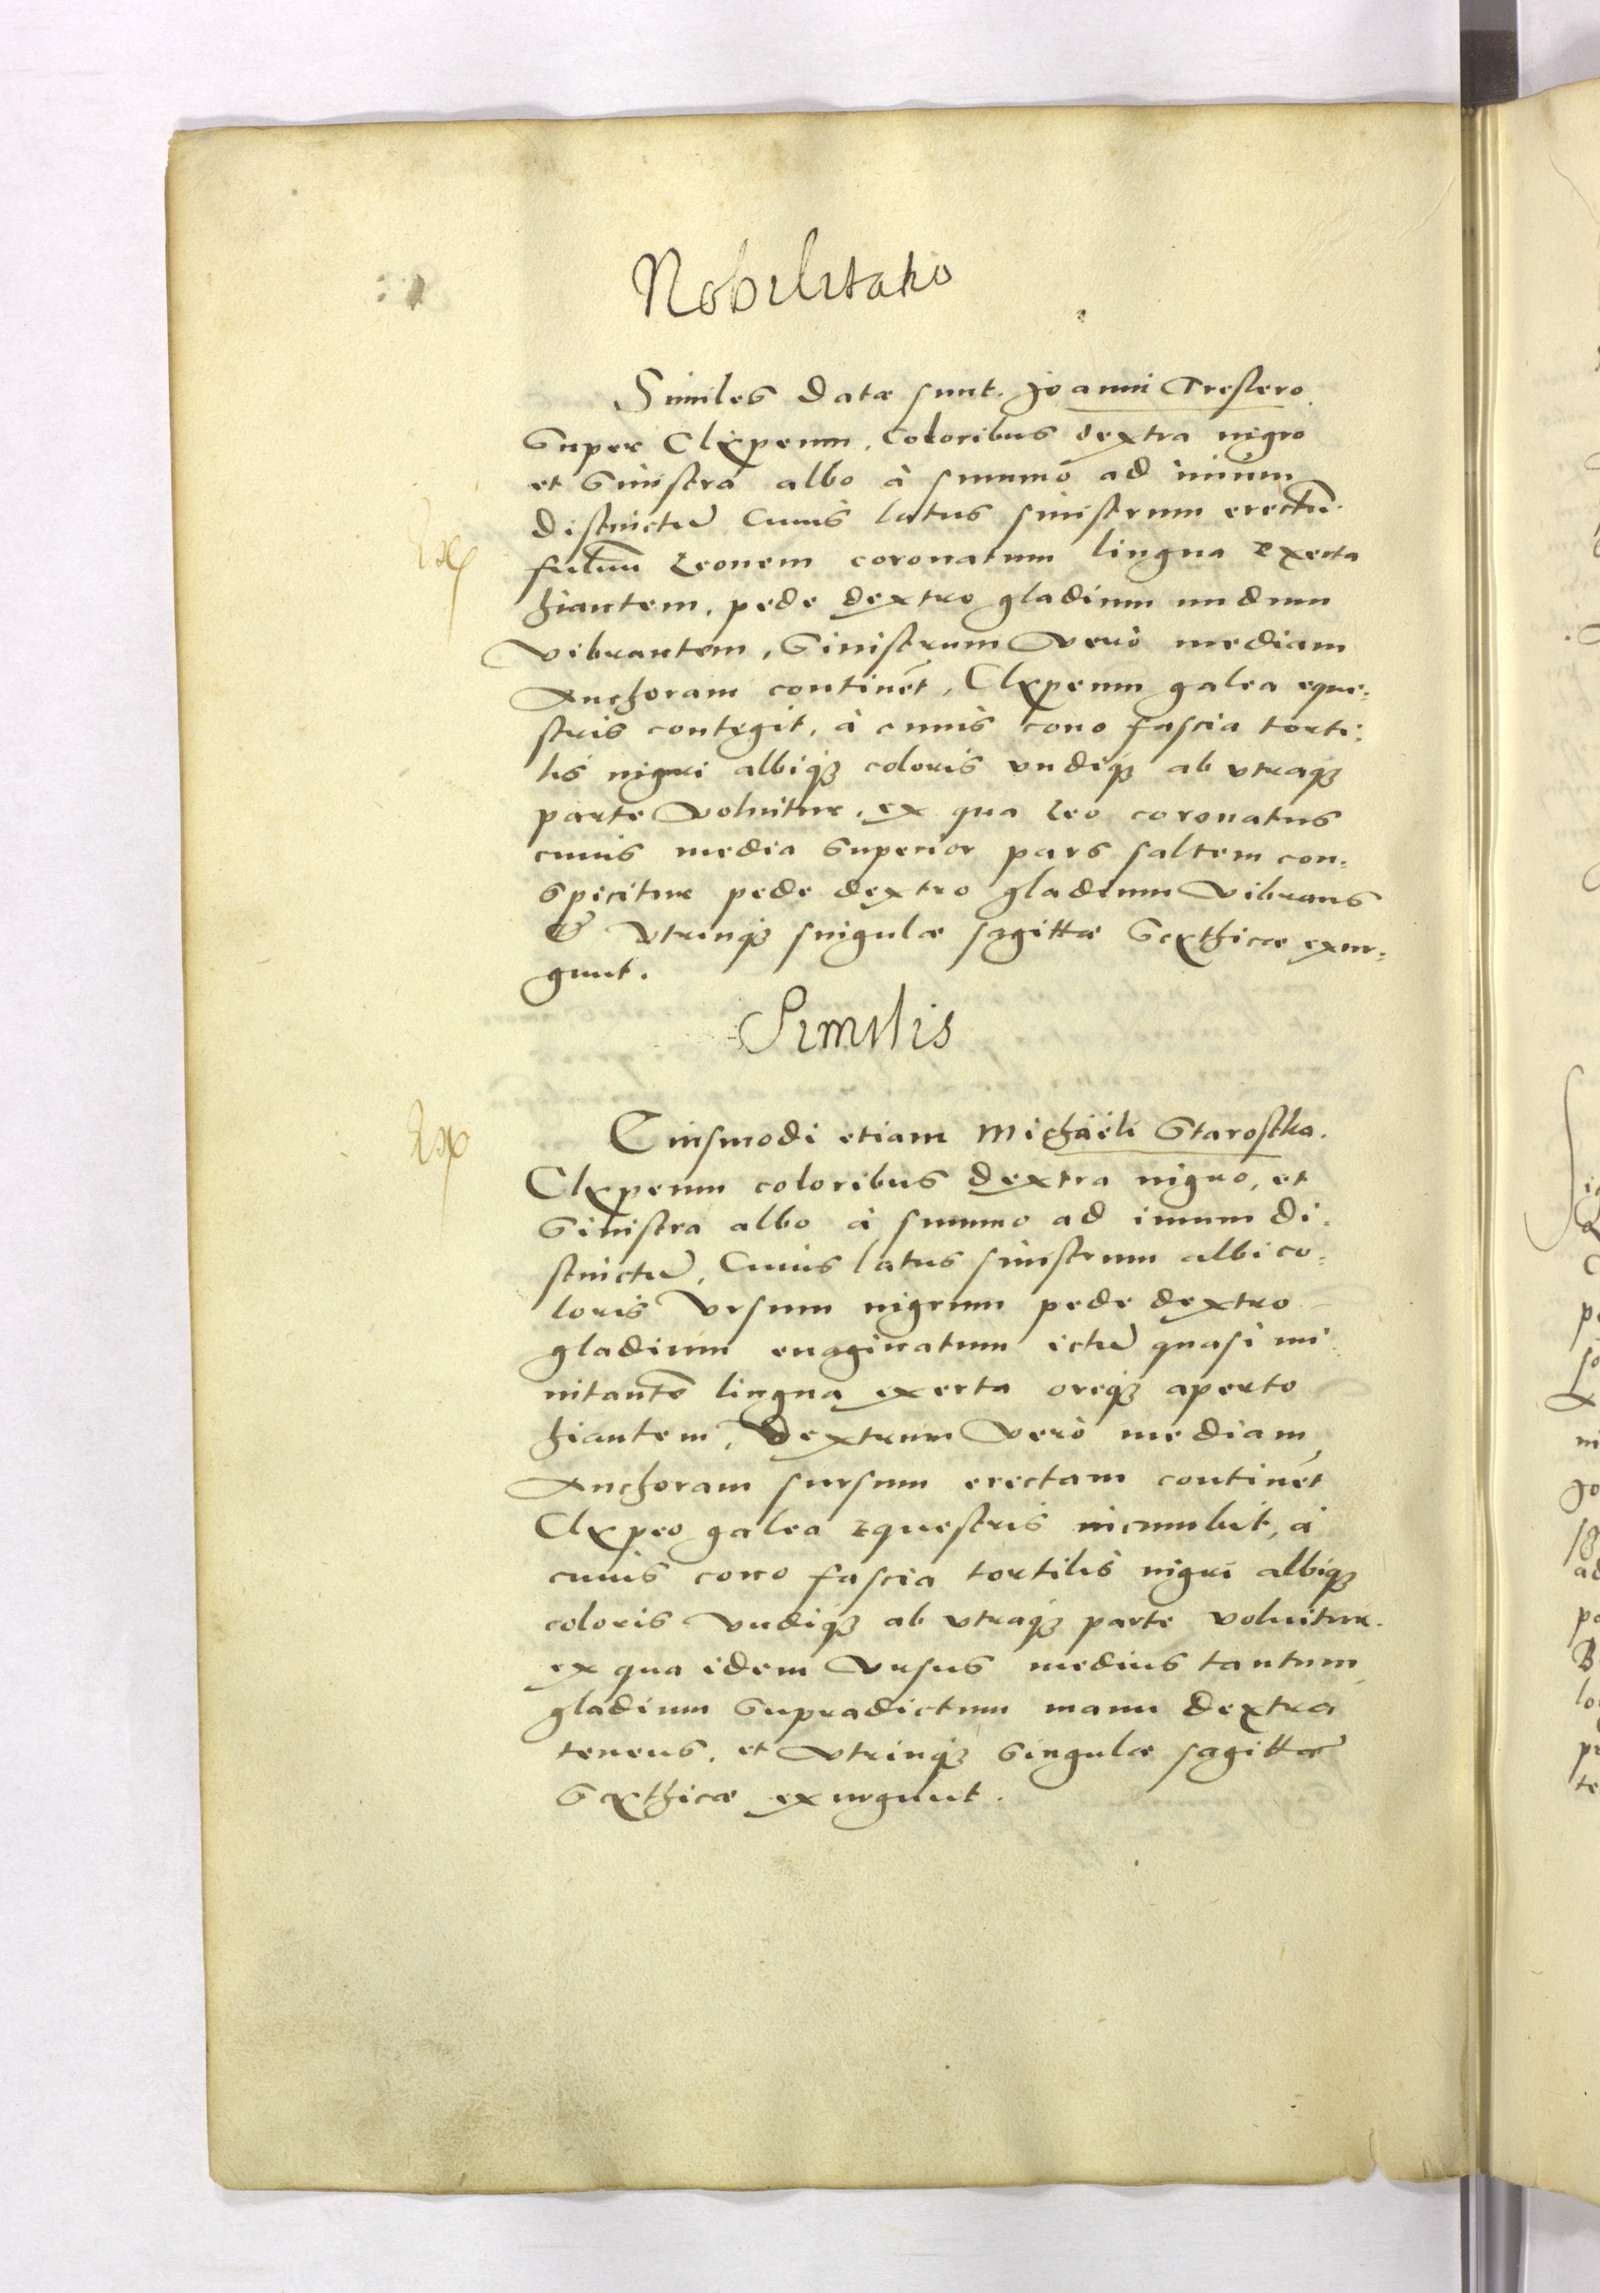 Nobilitatio
Similes datæ sunt Joanni Treslero
super Clypeum, coloribus dextra nigro
et sinistra albo à summo ad imum
distinctũ Cuius latus sinistrum erectũ
fuluũ Leonem coronatum lingua exerta
hiantem, pede dextro gladium nudum
vibrantem, sinistrum verò mediam
Anchoram continet, Clypeum galea eque-
stris contegit, à cuius cono fascia torti-
lis nigri albiq; coloris vndiq; ab vtraq;
parte voluitur, ex qua Leo coronatus
cuius media superior pars saltem con-
spicitur pede dextro gladium vibrans
& vtrinq; singulæ sagittæ Scythicæ exur-
gunt.
Similis
Eiusmodi etiam Michaëli Starostka.
Clypeum coloribus dextra nigro, et
sinistra albo à summo ad imum di-
stinctũ, Cuius latus sinistrum albi co-
loris Vrsum nigrum pede dextro
gladium euaginatum ictũ quasi mi-
nitantẽ lingua exerta oreq; aperto
hiantem, Dextrum verò mediam
Anchoram sursum erectam continet
Clypeo galea equestris incumbit, à
cuius cono fascia tortilis nigri albiq;
coloris vndiq; ab vtraq; parte voluitur.
ex qua idem Vrsus medius tantum
gladium supradictum manu dextra
tenens, et vtrinq; singulæ sagittæ
Scythicæ exurgunt.